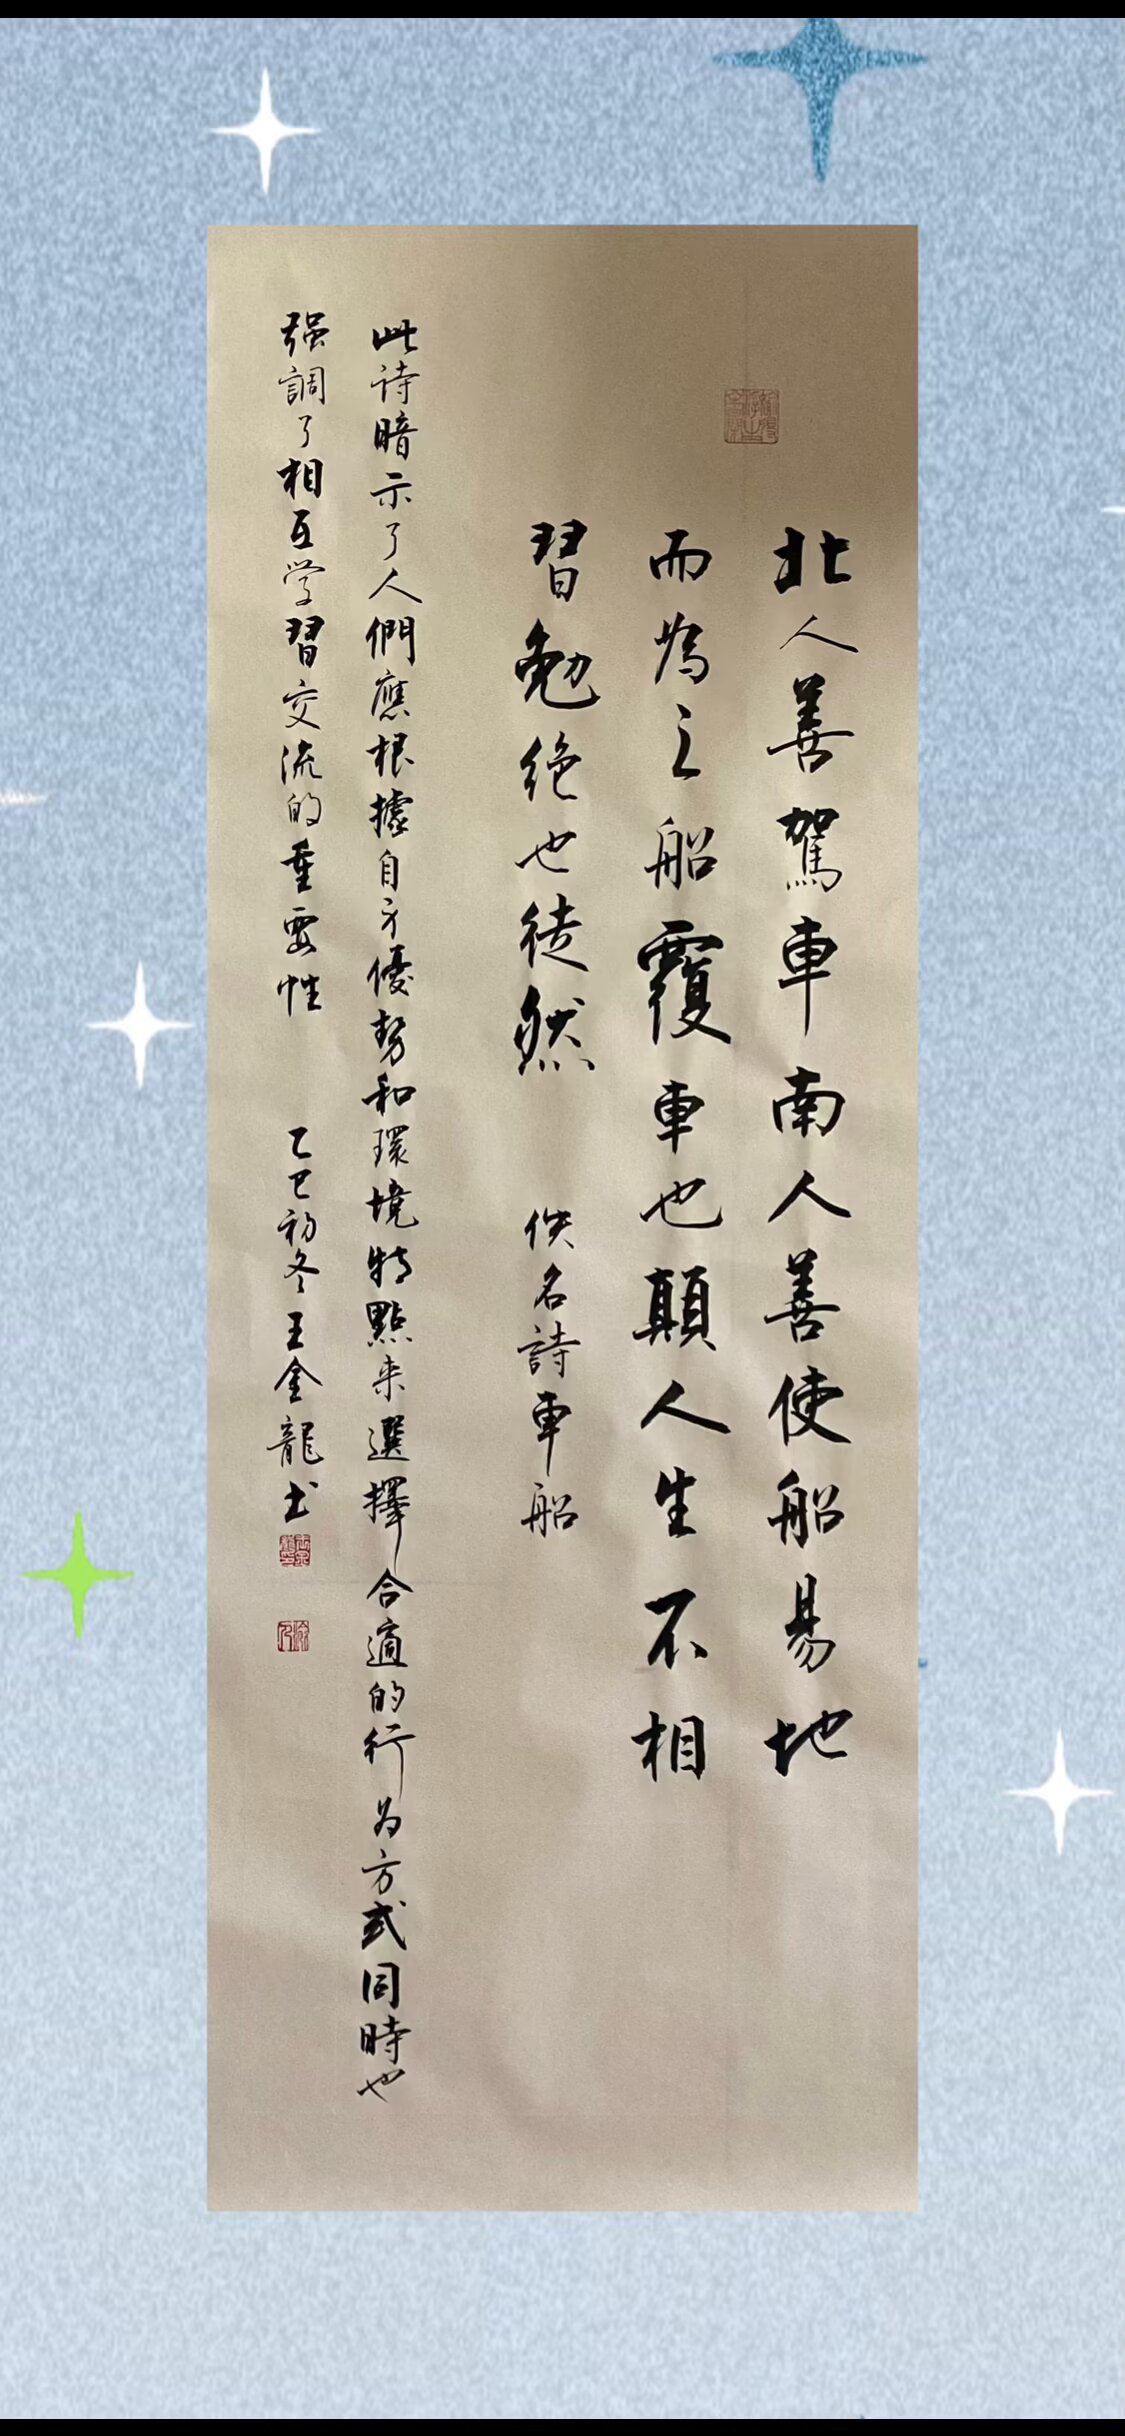 北人善駕車南人善使船易地
而為之船覆車也顛人生不相
習勉绝也徒然 佚名詩車船
此诗暗示了人們應根據自身優勢和環境特點来選擇合適的行为方式同時也
强調了相互学習交流的重要性 乙巳初冬王金龍书